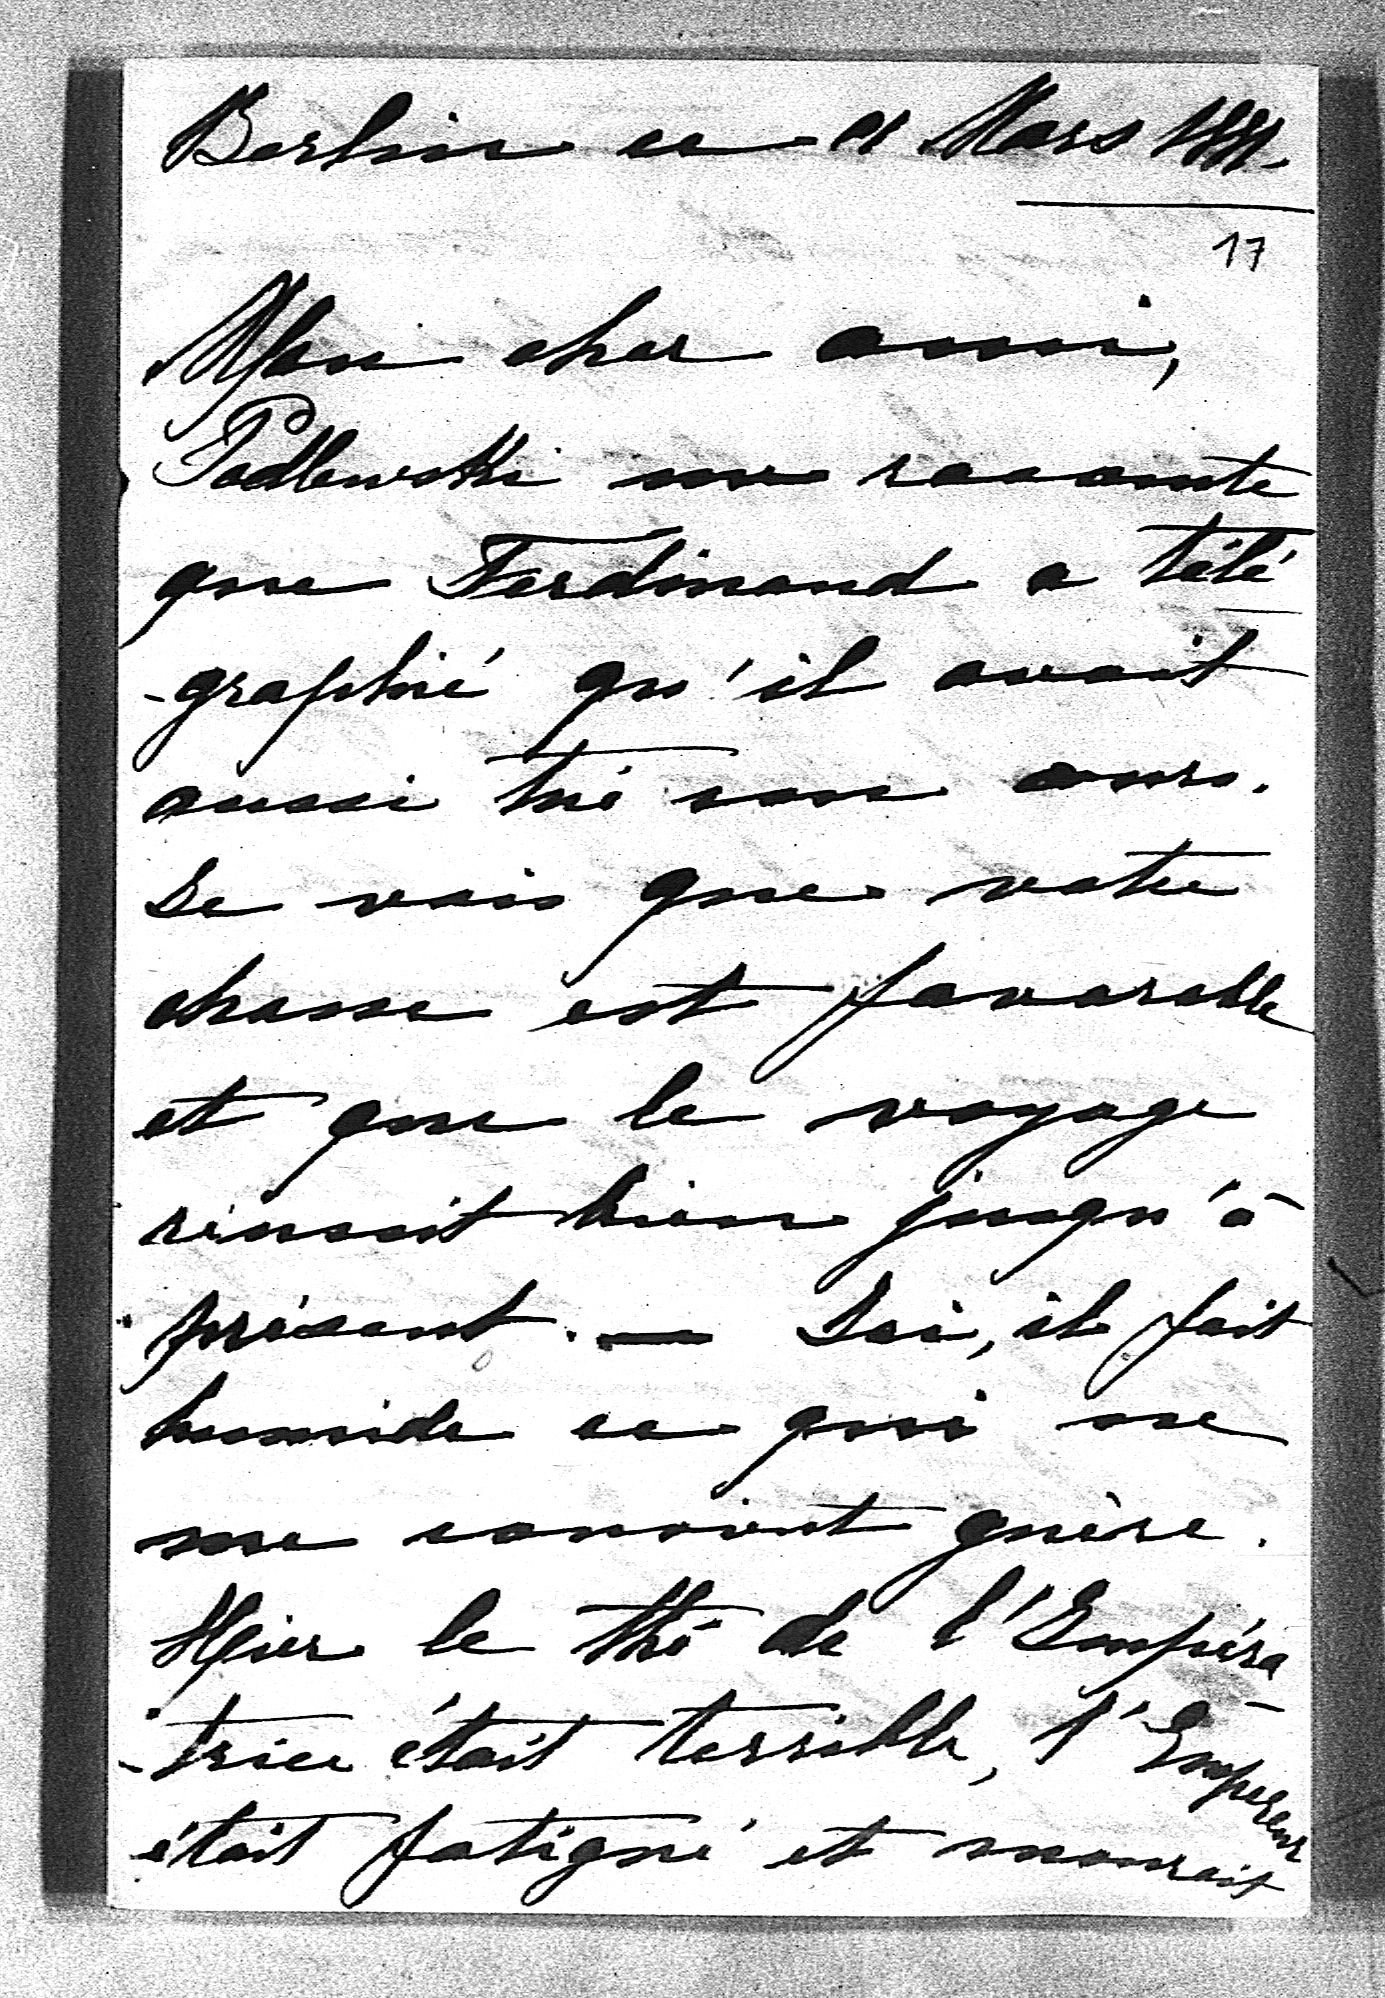 Berlin ce Mars
17
Mon cher ami,
Podlewski me raconte
que Ferdinand a télé
-graphié qu'il avait
aussi tué son ours.
Je vois que votre
chasse est favorable
et que le voyage
réussit bien jusqu'à
présent. — Ici, il fait
humide ce qui ne
me convient guère.
Hier le thé de l'Impéra
-trice était terrible, l'Empereur
était fatigué et mourait